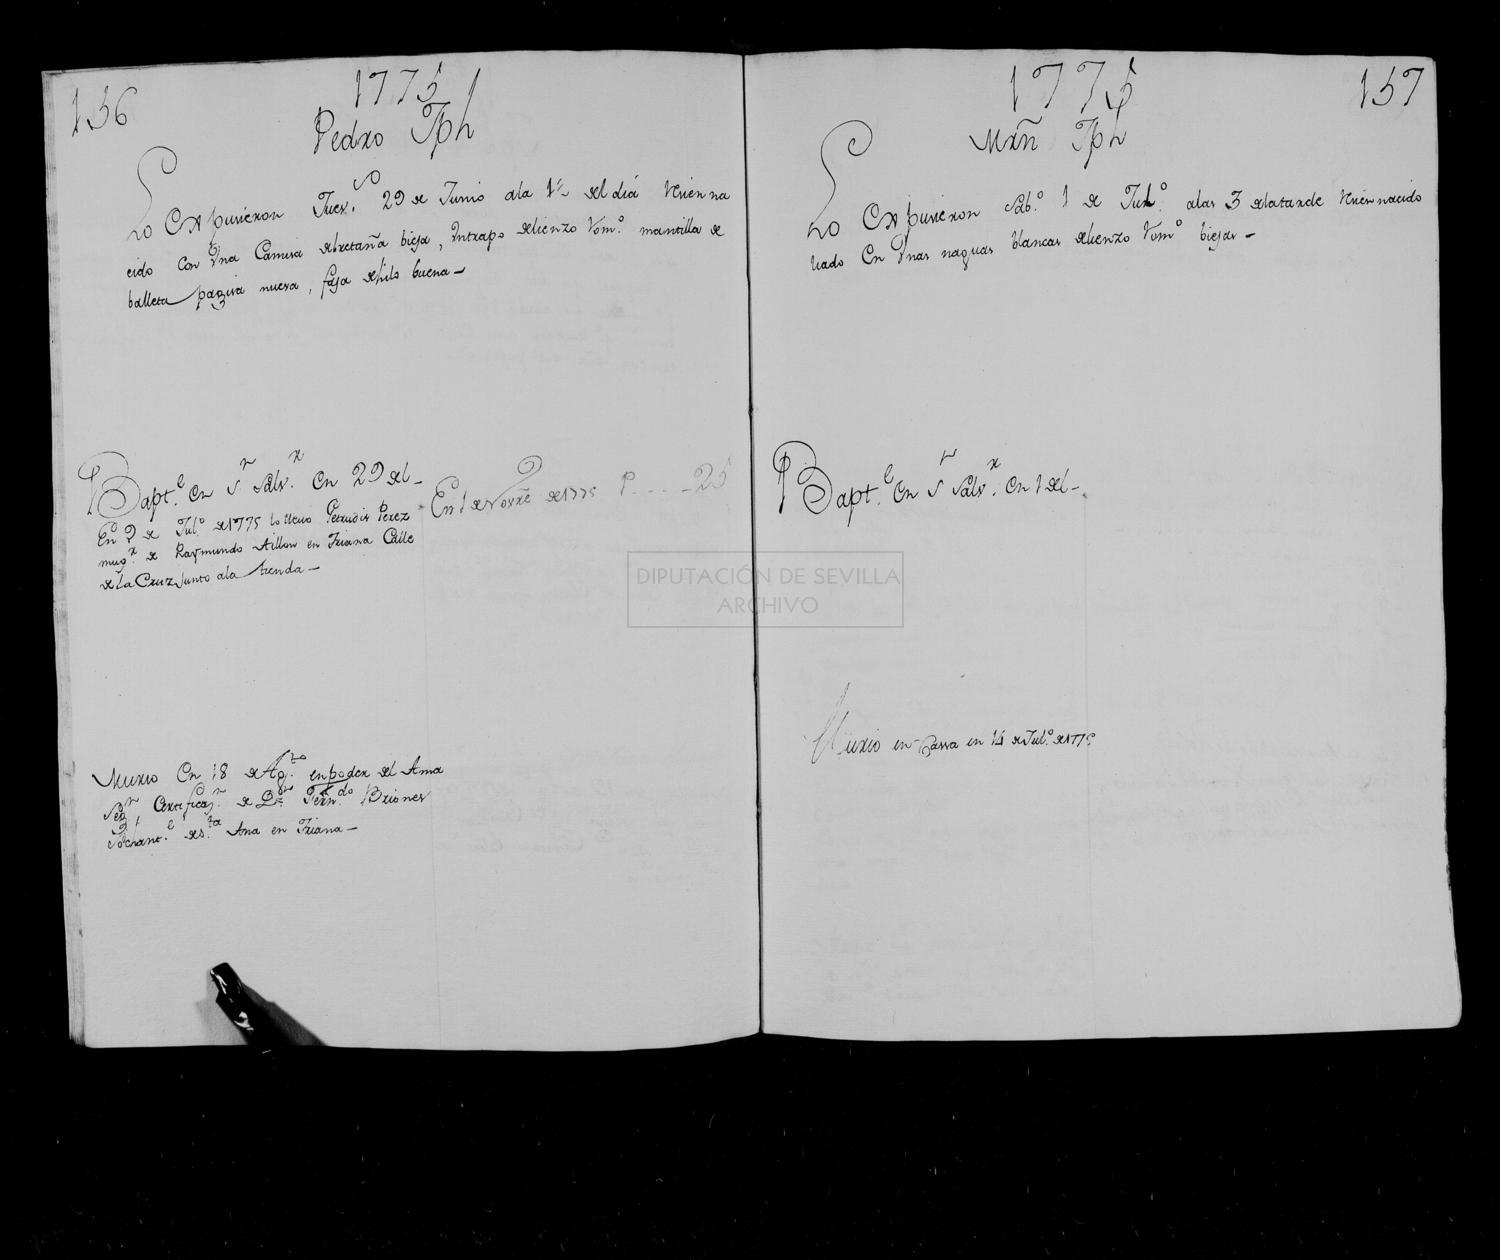 156
1775
Pedro Jph
Lo Expusieron Juev.^s 29 de Junio ala 1ª del dia Rezienna
cido con Vna Camisa debretaña bieja, Vntrapo delienzo Vom.º mantilla de
balleta pagiza nueva, faja dehilo buena—
Bapt.^e en S.^r Salv.^r En 29 del—
En 2 de Jul.º de1775 lo llevo Petrudis Perez
mug.^r de Raymundo Aillon en Triana Calle
de la Cruz Junto ala tienda—
En 1 de Novre de1775 P....25
Murio En 18 de Ag.^to en poder del Ama
Seg.^n Certificaz.^n de Dn Fern.^do Briones
Sochant.^e de S.^ta Ana en Triana—
1775
157
Mrñ Jph
Lo Expusieron Sab.º 1 de Jul.º alas 3 delatarde Reziennacido
liado En Vnas naguas blancas delienzo Vom.º biejas—
Bapt.^e en S.^r Salv.^r En 1 del—
Murio en Cassa en 14 de Jul.º de1775
DIPUTACIÓN DE SEVILLA
ARCHIVO